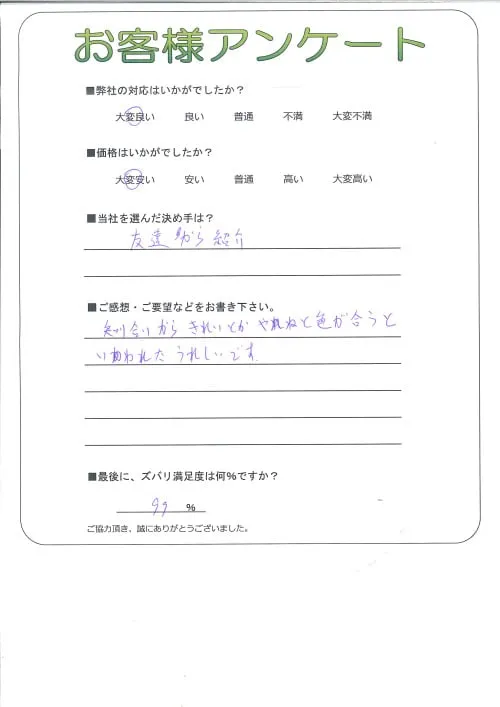 お客様アンケート
■弊社の対応はいかがでしたか？
大変良い 良い 普通 不満 大変不満
■価格はいかがでしたか？
大変安い 安い 普通 高い 大変高い
■当社を選んだ決め手は？
友達から紹介
■ご感想・ご要望などをお書き下さい。
知り合いからきれいとかやねと色が合うと
いわれたうれしいです.
■最後に、ズバリ満足度は何%ですか？
99 %
ご協力頂き、誠にありがとうございました。